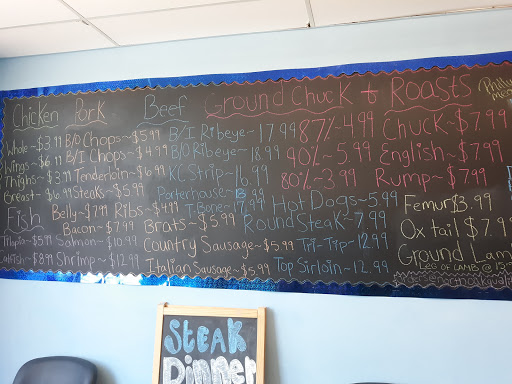 Chicken
Whole~$3.99
Wings~$6.99
Thighs~$3.99
Breast~$6.99
Fish
Tilapia~$5.99
Catfish~$8.99
Pork
B/O Chops~$5.99
B/I Chops~$4.99
Tenderloin~$6.99
Steaks~$5.99
Belly~$7.99
Ribs~$4.99
Bacon~$7.99
Salmon~$10.99
Shrimp~$12.99
Beef
B/I Ribeye~17.99
B/O Ribeye~18.99
KC Strip~16.99
Porterhouse
T.Bone~17.99
Brats~$5.99
Country Sausage~$5.99
Italian Sausage~$5.99
Ground Chuck + Roasts
87%~4.99
90%~5.99
80%~3.99
Chuck~$7.99
English~$7.99
Rump~$7.99
Hot Dogs~5.99
Round Steak~7.99
Tri-Tip~12.99
Top Sirloin~12.99
Femur $3.99
Ox tail $7.99
Ground Lamb
Leg of Lamb @
Philly
STEAK
Dinner